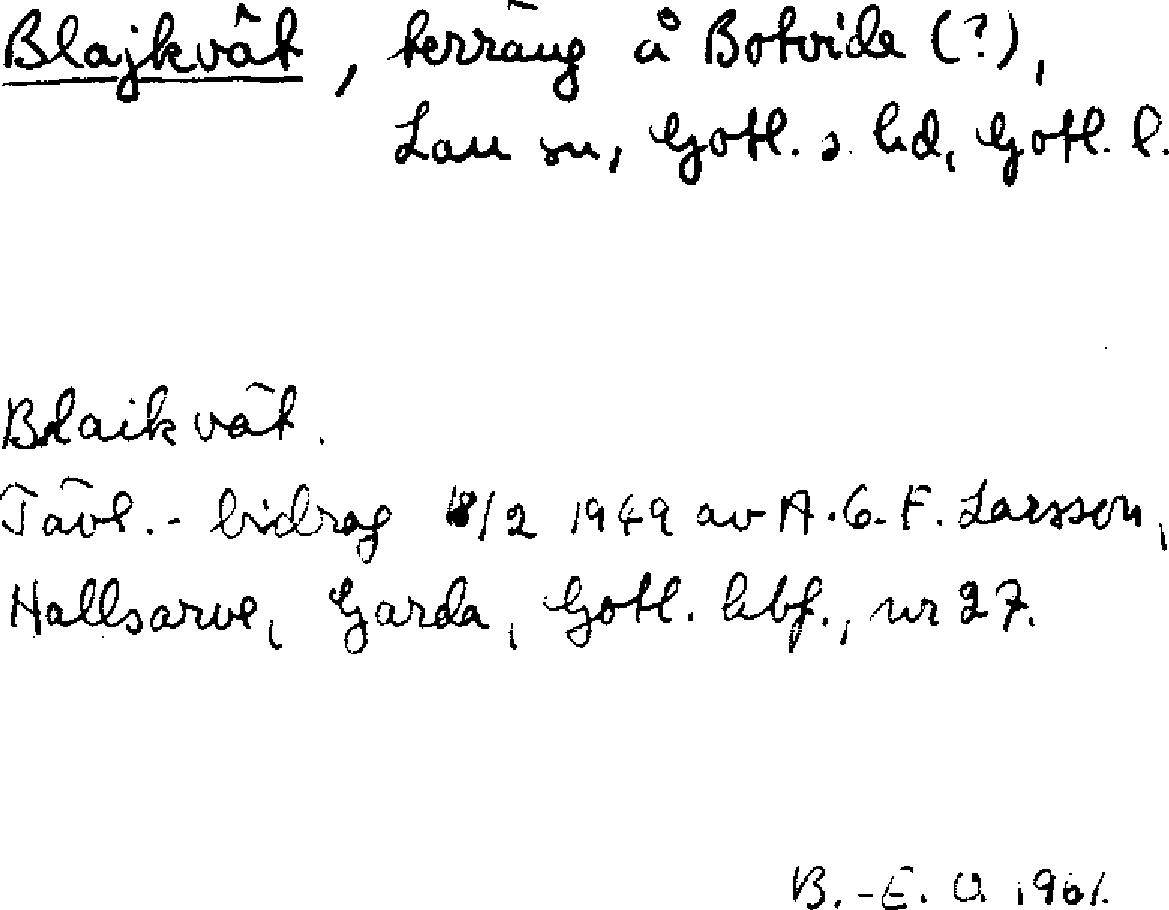 Blajkvät, terräng å Botvide (?),
Lau sn, Gotl. s. hd, Gotl. l.
Blaikvät.
Tävl.-bidrag 18/2 1949 av A.G.F. Larsson,
Hallsarve, Garda, Gotl. hbf., nr 27.
B.-E. O. 1961.